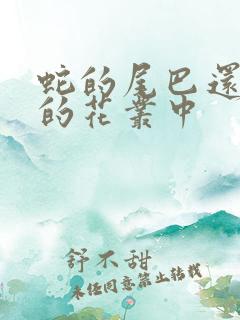 蛇的尾巴還
的花叢中
舒不甜
未經同意禁止轉載